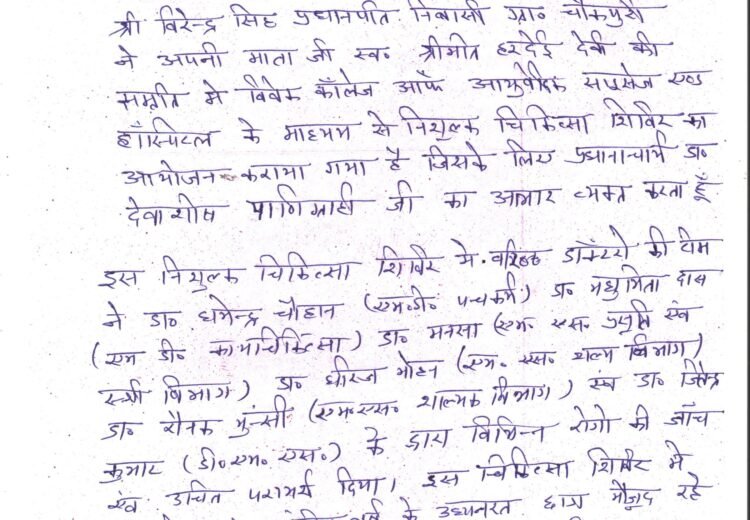 श्री विरेन्द्र सिंह प्रधानपति निवासी ग्रा० चाँकपुरी
ने अपनी माता जी स्व० श्रीमति हरदेई देवी की
स्मृति में विवेक कॉलेज ऑफ आयुर्वेदिक साइंसेज एण्ड
हॉस्पिटल के माध्यम से निशुल्क चिकित्सा शिविर का
आयोजन कराया गया है जिसके लिए प्रधानाचार्य डा०
देवाशीष पाणिग्राही जी का आभार व्यक्त करता हूँ
इस निशुल्क चिकित्सा शिविर मे वरिष्ठ डॉक्टरो की टीम
ने डा० धर्मेन्द्र चौहान (एम०डी० पंचकर्म) डा० मधुमिता दास
(एम डी० कायाचिकित्सा) डा० मनसा (एम० एस० प्रसुति एवं
स्त्री विभाग) डा० धीरज मोहन (एम० एस० शल्य विभाग)
डा० रौनक मुन्सी (एम०एस० शालक्य विभाग) एवं डा० जितेन्द्र
कुमार (डी०एम० एस०) के द्वारा विभिन्न रोगो की जाँच
एवं उचित परामर्श दिया। इस चिकित्सा शिविर मे
के अध्यनरत छात्र मौजूद रहे